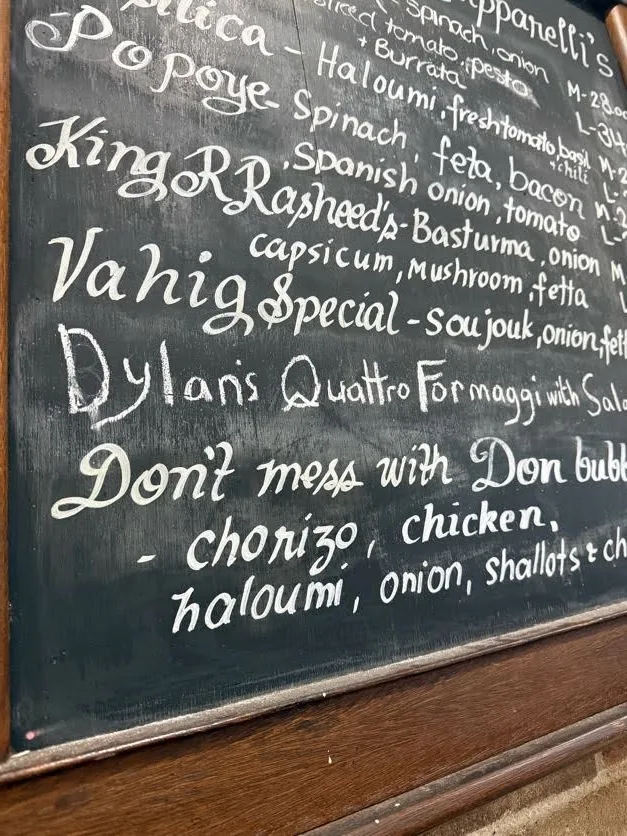 pparelli's
- Spinach, onion
sliced tomato, pesto
+ Burrata
M-28.00
L-34
ilica - Haloumi, fresh tomato, basil
+ chili
M-2
L-
Popoye - Spinach, feta, bacon
M-2
, Spanish onion, tomato
L-
King R Rasheed's - Basturma, onion M
capsicum, mushroom, fetta
Vahig Special - soujouk, onion, fett
Dylan's Quattro Formaggi with Sala
Don't mess with Don bubb
- chorizo, chicken,
haloumi, onion, shallots & ch